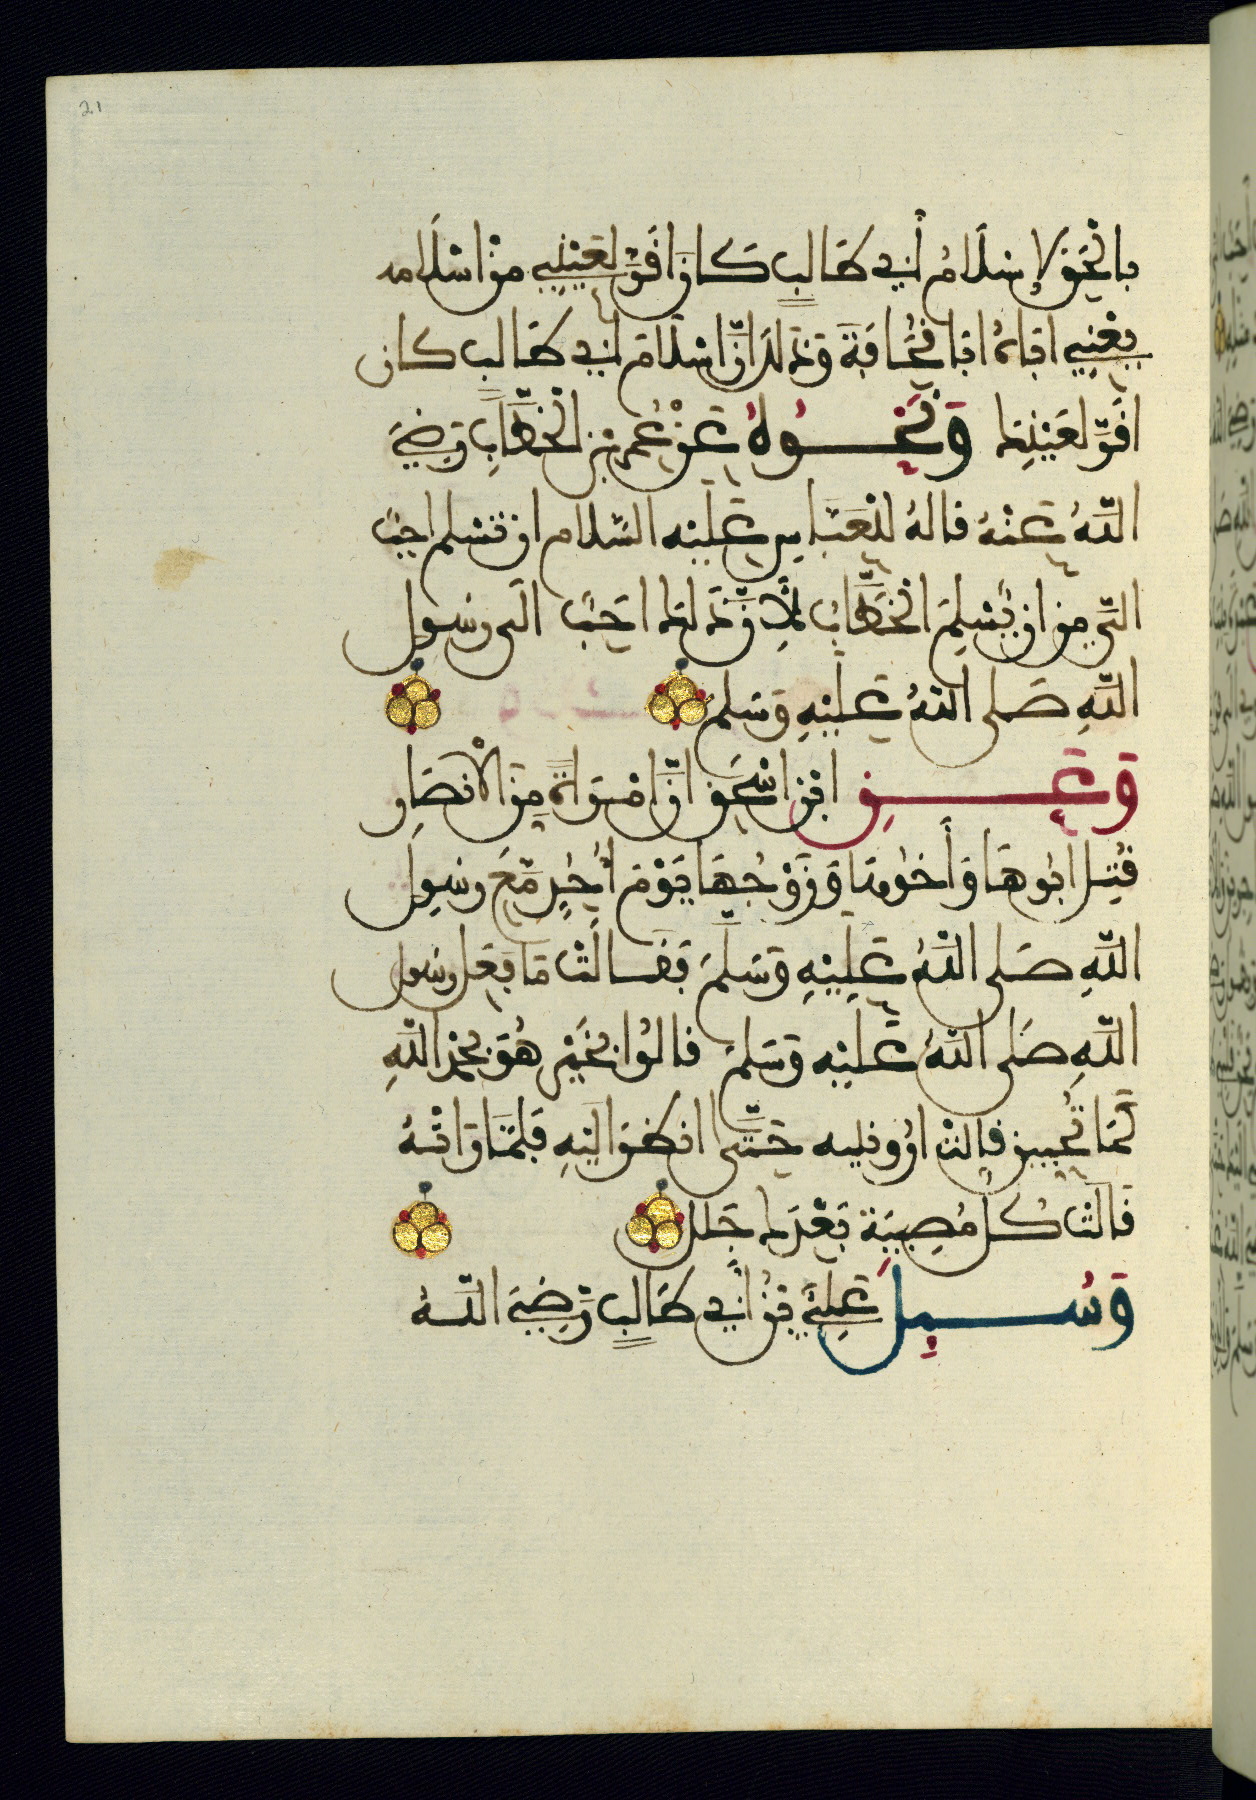 21
بالحق لإسْلَامُ أَبِي طَالِبٍ كَانَ اَقَرَّ لِعَيْنِي مِنْ اسْلَامه
يَعْنِي اَبَاهُ اَبَا قُحَافَةَ وَذَلكَ اَنَّ اسْلَامَ اَبِي طَالِب كان
اَقَرّ لعَيْنِكَ وَنَحْوُهُ عَنْ عُمر بْنِ الْخطَّابِ رَضِيَ
اللَّهُ عَنْهُ قالهُ لِلْعَبَّاسِ عَلَيْهِ السَّلام ان تسْلم احبُّ
اِلَىَّ مِن ان يُسْلِمَ الْخَطَّابُ لِأَنَّ ذَلكَ اَحَبُّ الَى رسُولِ
اللَّهِ صَلى اللَّهُ عَلَيْهِ وَسَلم
وَعَنِ ابْنِ اسْحَق اَنَّ امْرَاَةً مِنَ الْأنصَارِ
قُتِلَ ابُوهَا وَأَخُوهَا وَزَوْجُهَا يَوْمَ أُحُدٍ مَّعَ رسُولِ
اللَّهِ صَلى اللَّهُ عَلَيْهِ وَسَلمَ فَقَالَتْ مَا فَعَلَ رسُولُ
اللَّهِ صَلى اللَّهُ عَلَيْهِ وَسَلمَ قالُوا بِخَيْرٍ هُوَ بِحَمْدِ اللَّهِ
كَمَا تُحِبِّين قالَتْ اَرُونِيه حَتَّى انظُرَ اِلَيْهِ فَلَمَّا رَاتْهُ
قَالَتْ كُلُّ مُصِيبَة بَعْدَكَ جَلَل
وَسُئِلَ عَلِيُّ بْنُ أَبِي طَالِبٍ رَّضِيَ اللَّهُ